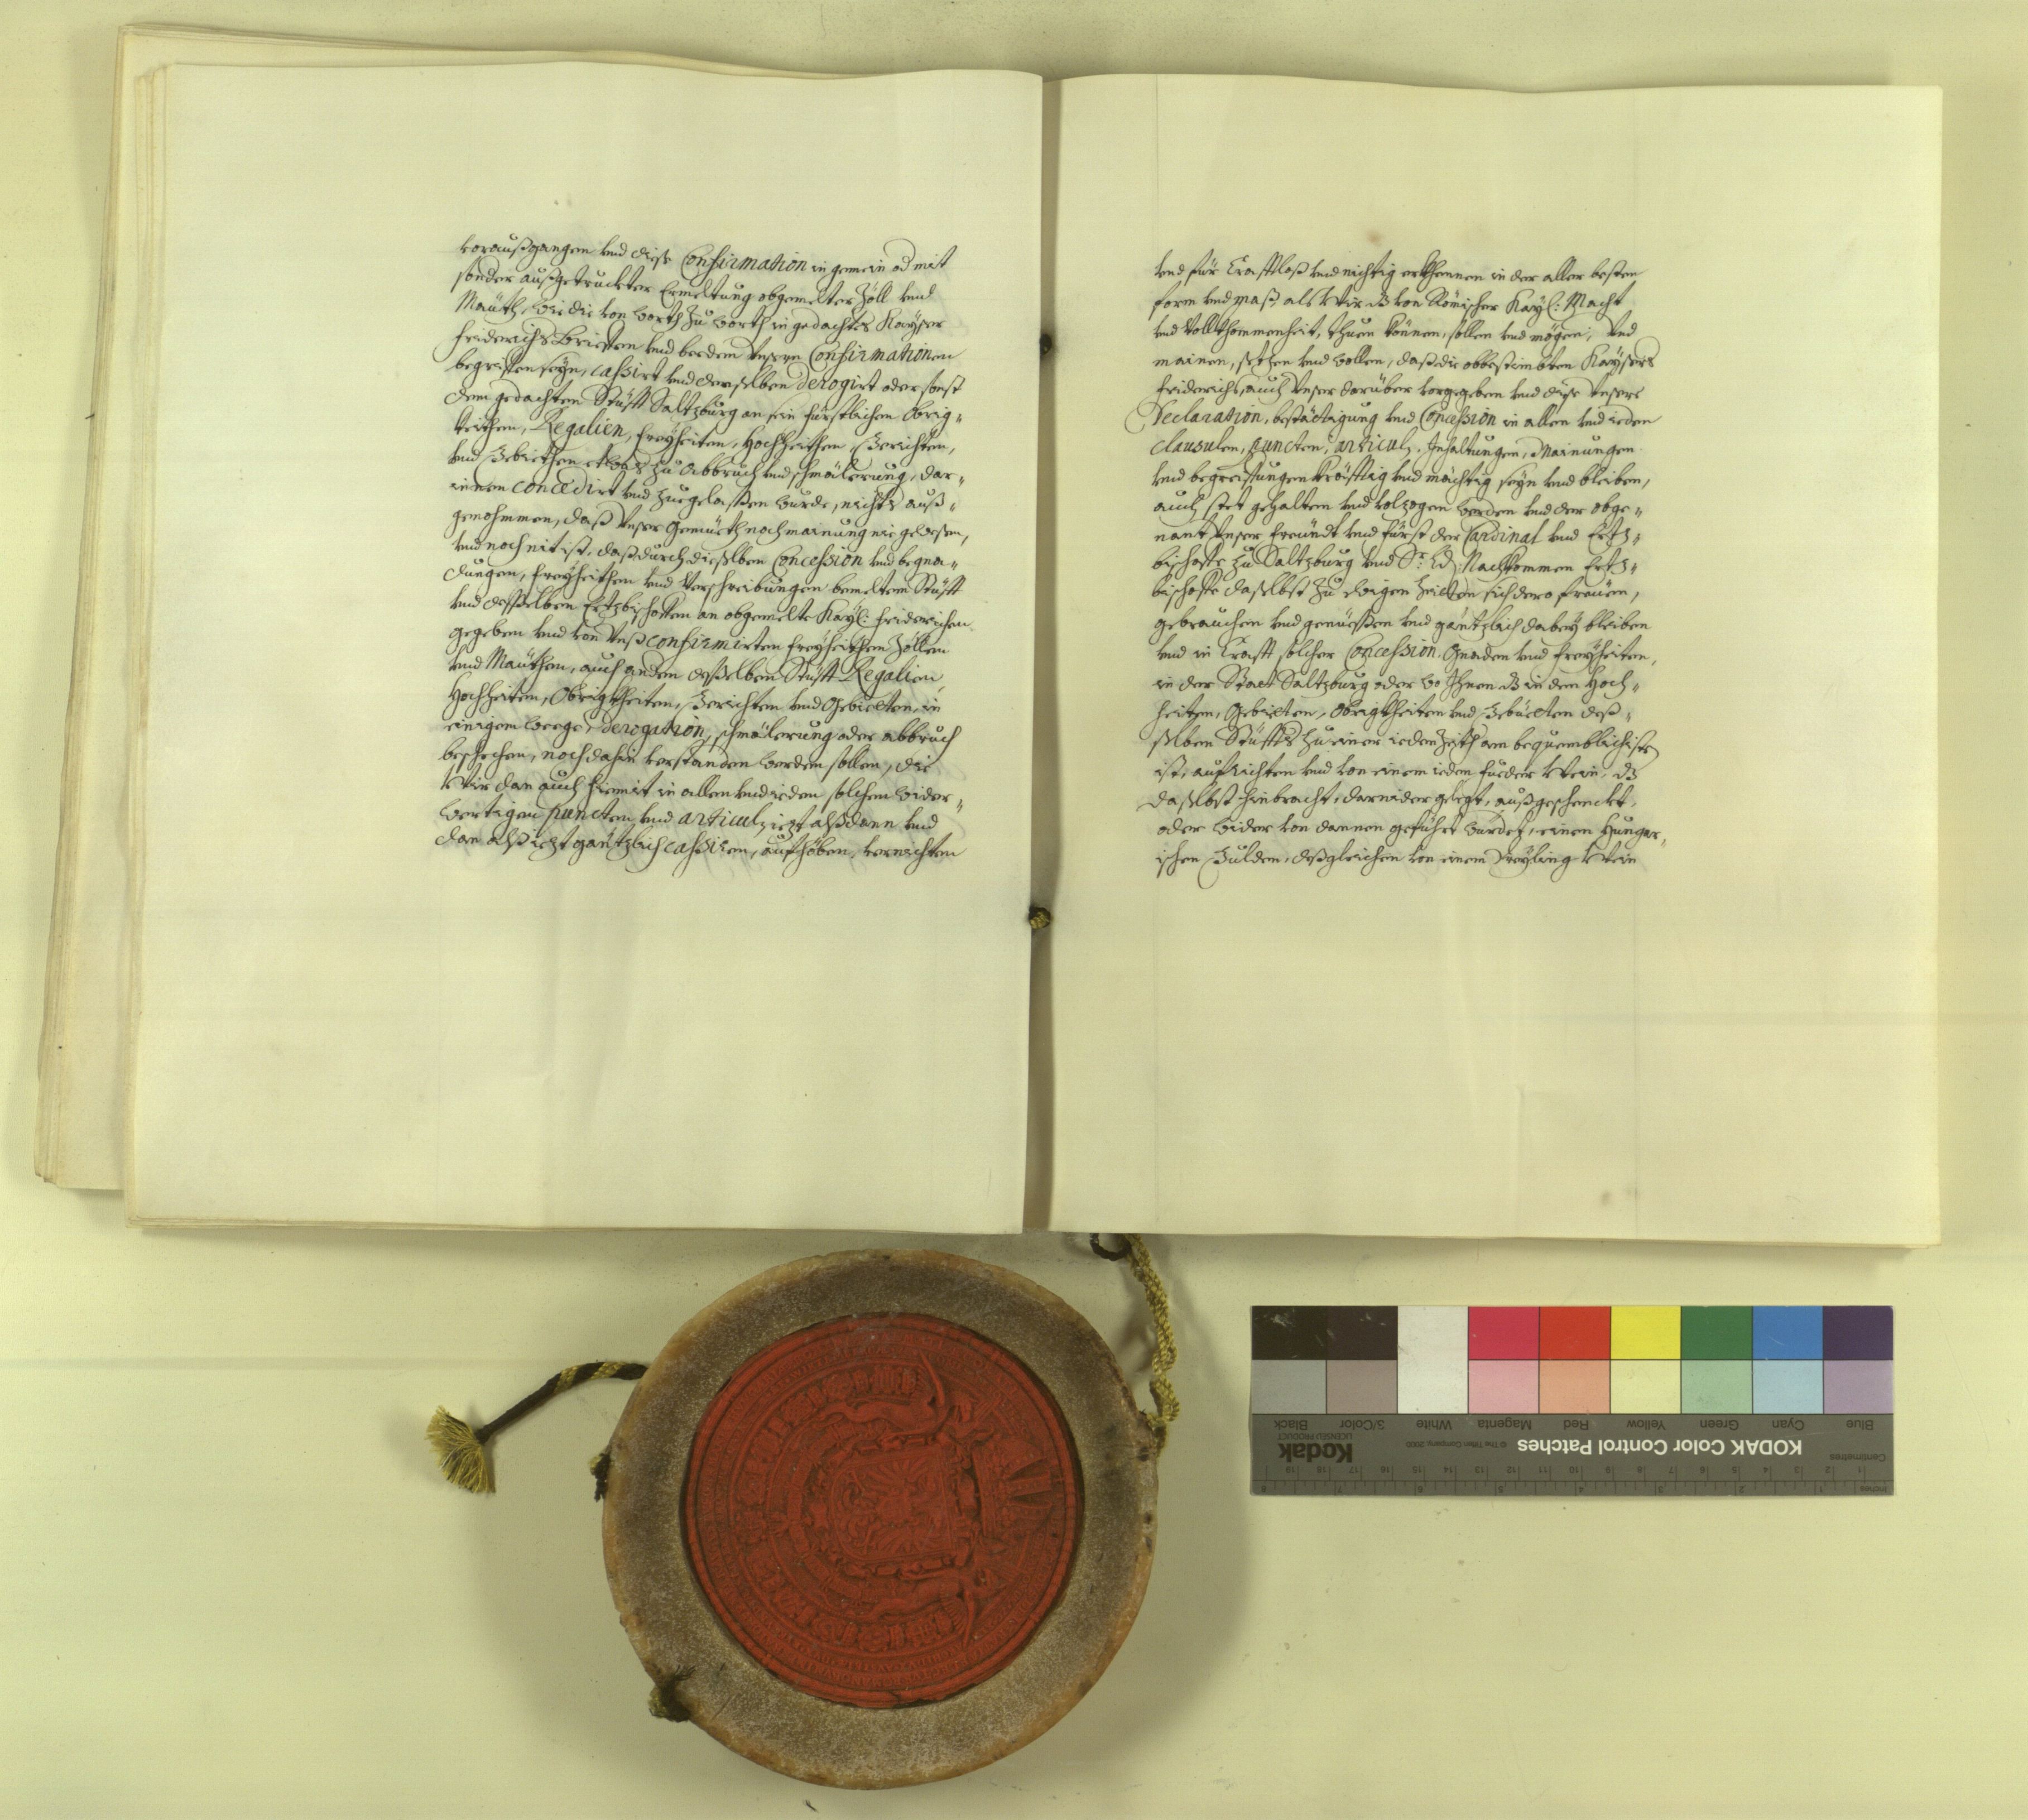 voraußgangen vnd diese Confirmation in gemein od mit
sonder außgetruckter Ermeltung obgemelter Zöll vnd
Mauth, wie die von worth zu worth in gedachtes Kaÿser
Friderichs Brieffen vnd beeden Vnsern Confirmationen
begriffen seÿn, cassirt vnd denselben derogirt oder sonst
dem gedachten Stüfft Saltzburg an sein fürstlichen Obrig-
keithen, Regalien, freÿheiten, Hochheithen, Gerichten,
vnd Gebiethen etwas zu Abbruch vnd schmälerung, dar-
innen concedirt vnd zuegelaßen wurde, nichts auß-
genohmmen, daß Vnser Gemüeth noch mainung nie gewesen,
vnd noch nit ist, daß durch dieselben Concession vnd begna-
dungen, freÿheithen vnd Verschreibungen bemeltem Stüfft
vnd desselben Ertzbischoffen an obgemelte Kaÿ: Friderichen
gegeben vnd von Vnß confirmirten freÿheithen Zöllen
vnd Mauthen, auch andern deßelben Stüfft Regalien,
Hochheiten, Obrigkheiten, Gerichten vnd Gebietten, in
einigem weege derogation, schmälerung oder abbruch
beschechen, noch dahin verstanden werden sollen, die
Wir dan auch hiemit in allen vnd ieden solchen wider-
wertigen puncten vnd articulen iezt alßdann vnd
dan alß iezt gäntzlich cassiren, aufhöben, vernichten
vnd für Crafftloß vnd nichtig erkhennen in der aller besten
form vnd maß, als Wir dz von Römischer Kaÿ: Macht
vnd Vollkhommenheit, thuen können, sollen vnd mögen, Vnd
mainen, sezen vnd wollen, daß die obbestimbten Kaÿsers
Friderichs, auch Vnser darüber vorgegeben vnd diese Vnsere
Declaration, bestättigung vnd Concession in allen vnd ieden
Clausulen, puncten, articuln, Inhaltungen, Mainungen
vnd begreiffungen kräfftig vnd mächtig seÿn vnd bleiben,
auch stet gehalten vnd volzogen werden vnd der obge-
nant Vnser freündt vnd fürst der Cardinal vnd Ertz-
bischoffe zu Saltzburg vnd Sr: Ld: Nachkommen Ertz-
bischoffe daselbst zu ewigen Zeitten sich dero freüen,
gebrauchen vnd genüeßen vnd gäntzlich dabeÿ bleiben
vnd in Crafft solcher Concession, Gnaden vnd freÿheiten,
in der Statt Saltzburg oder wo Ihnen dz in den Hoch-
heiten, Gebietten, Obrigkheiten vnd Gebüetten deß-
selben Stüffts zu einer ieden Zeith am bequemblichisten
ist, aufrichten vnd von einem ieden fueder Wein, dz
daselbst hinbracht, darnider gelegt, außgeschenckt,
oder wider von dannen geführt wurdet, einen Hungar-
ischen Gulden, deßgleichen von einem Dreÿling Wein
KODAK Color Control Patches
Kodak
LICENSED PRODUCT
© The Tiffen Company, 2000
Blue Cyan Green Yellow Red Magenta White 3/Color Black
Centimetres
Inches